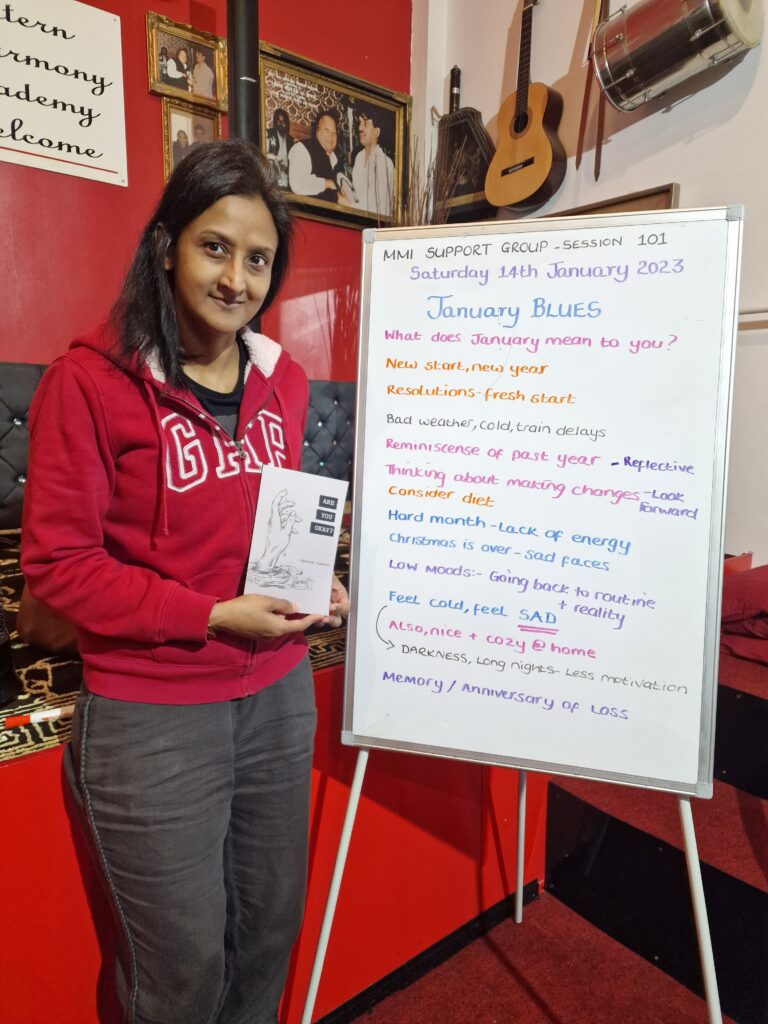 tern
armony
cademy
elcome
GAP
ARE
YOU
OKAY?
MMI SUPPORT GROUP - SESSION 101
Saturday 14th January 2023
January BLUES
What does January mean to you?
New start, new year
Resolutions - fresh start
Bad weather, cold, train delays
Reminiscense of past year - Reflective
Thinking about making changes - Look
forward
Consider diet
Hard month - Lack of energy
Christmas is over - sad faces
Low Moods:- Going back to routine
+ reality
Feel cold, feel SAD
Also, nice + cozy @ home
DARKNESS, Long nights - Less motivation
Memory / Anniversary of Loss